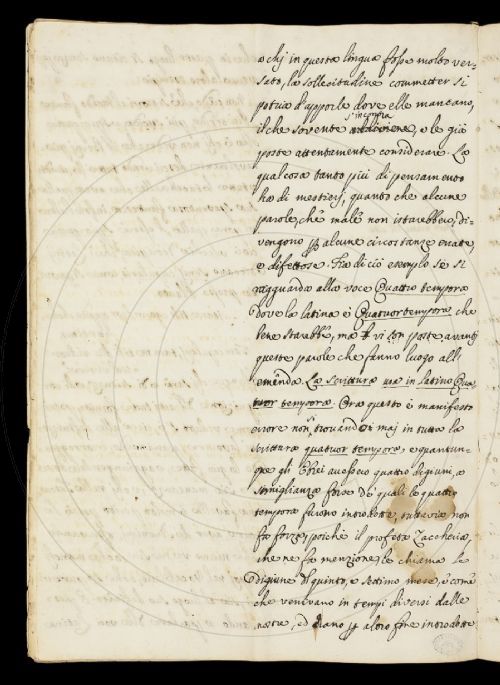 a chj in questa lingua fosse molto ver-
sato, la sollecitudine commetter si
potria d'apporle dove elle mancano,
s'incontra
il che sovente, e le già
poste attentamente considerare. La
qual cosa tanto più di pensamento
ha di mestierj, quanto che alcune
parole, che male non istarebbero, di-
vengono p alcune circostanze errate,
e difettose. Fia di ciò esemplo se si
risguarda alla voce Quattro tempora
dove la latina è Quatuor tempora che
bene starebbe, ma vi son poste avanti
queste parole che fanno luogo all'
emenda. La scrittura usa in latino Qua
tuor tempora. Ora questo è manifesto
errore non trovandosi maj in tutta la
scrittura quatuor tempora, e quantun-
que gli Ebrei avessero quattro digiuni, a
somiglianza forse de' quali le quattro
tempora furono introdotte, tuttavia non
fa forza, poichè il profeta Zaccheria,
che ne fa menzione, le chiama le
digiune del quinto, e settimo mese, e come
che venivano in tempi diversi dalle
nostre, ed erano p altro fine introdotte